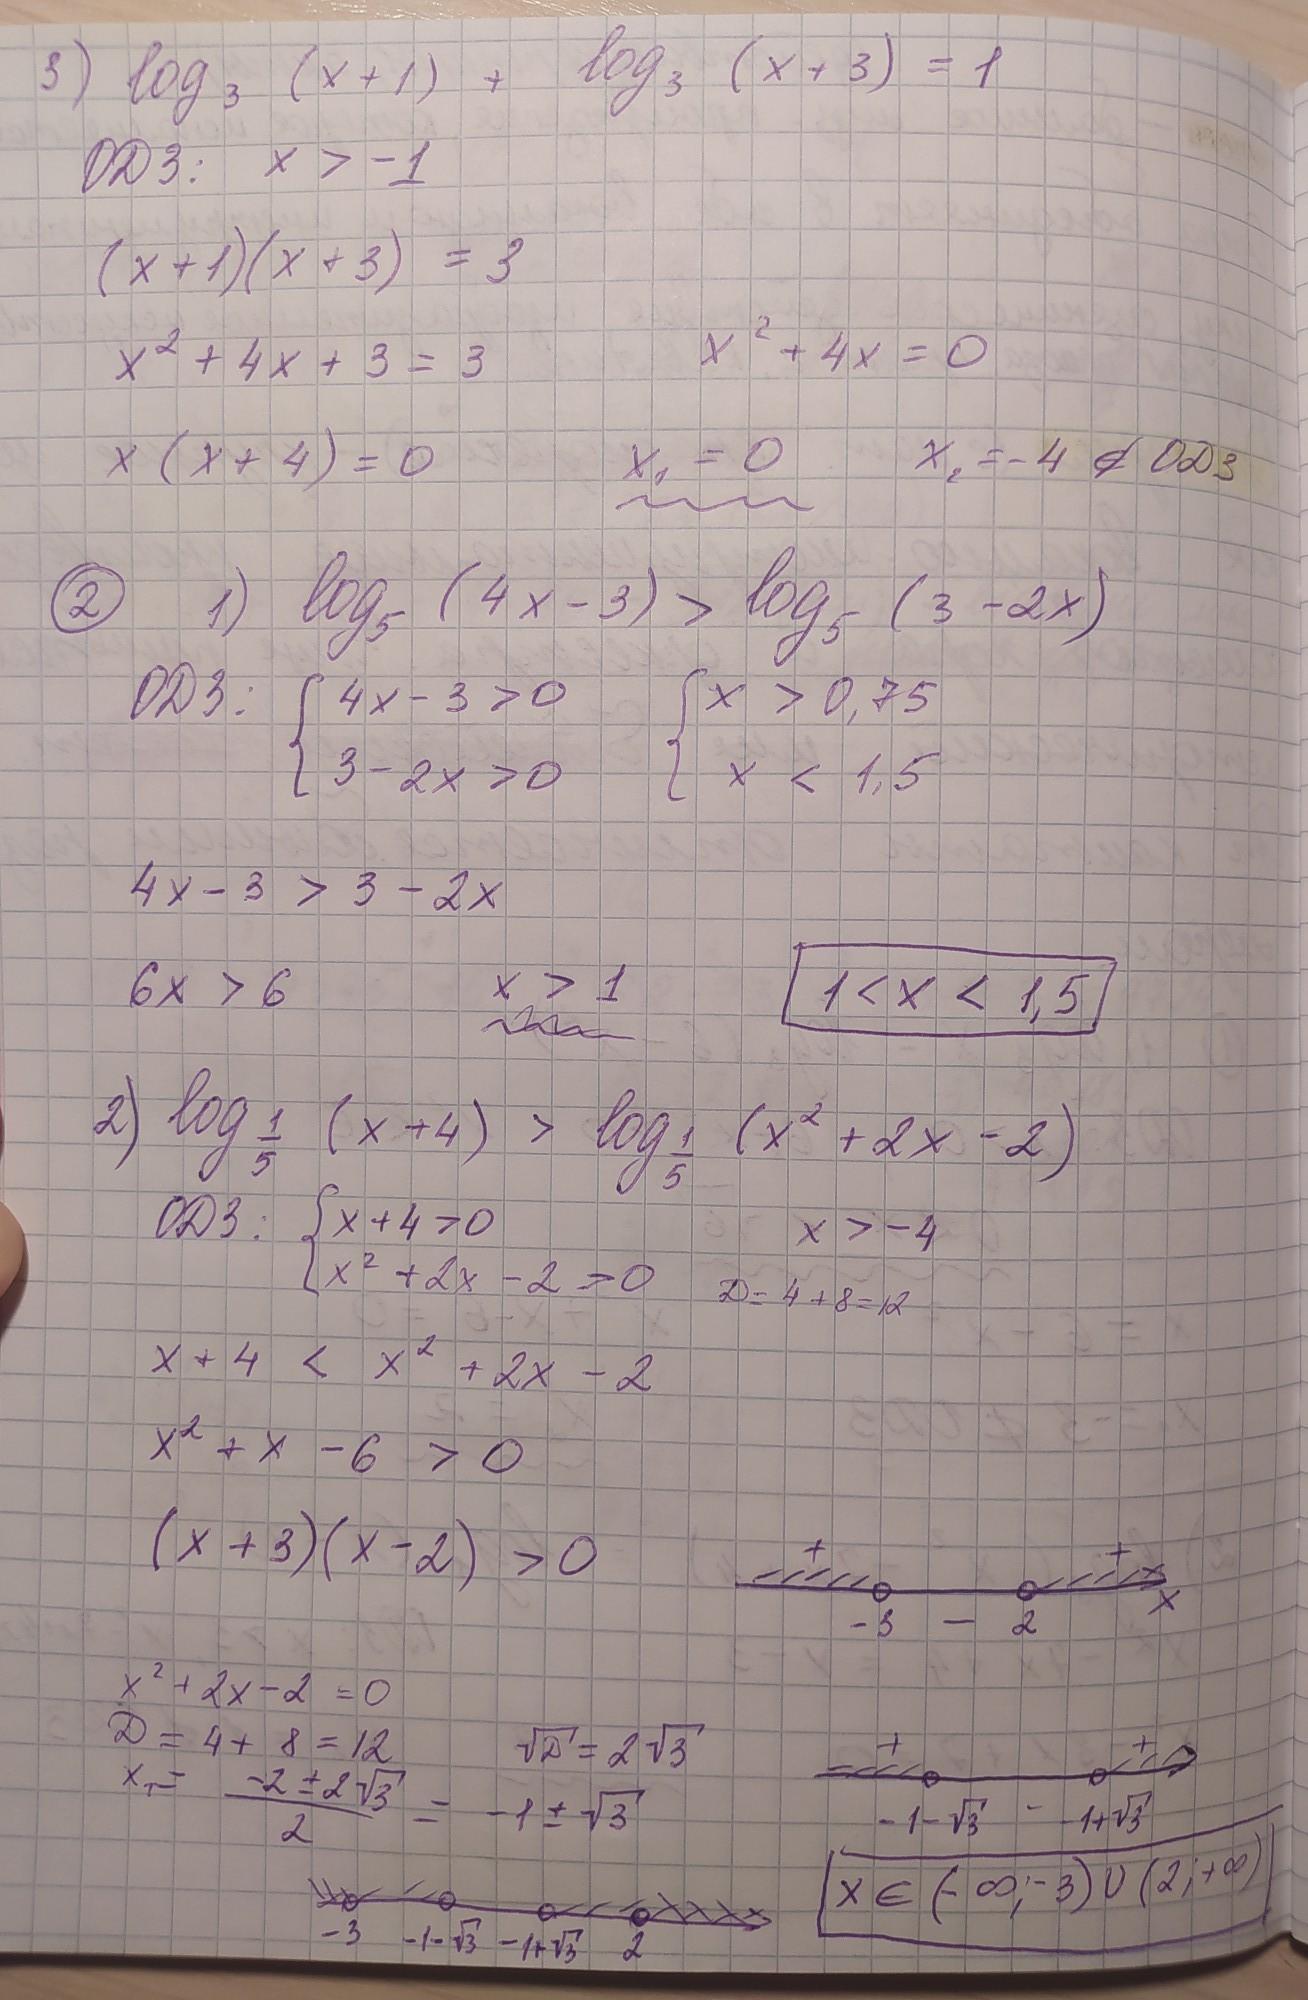 3) log₃ (x+1) + log₃ (x+3) = 1
ОДЗ: x > -1
(x+1)(x+3) = 3
x² + 4x + 3 = 3 x² + 4x = 0
x (x+4) = 0 x₁ = 0 x₂ = -4 ⊄ ОДЗ
② 1) log₅ (4x-3) > log₅ (3-2x)
ОДЗ: { 4x-3>0 { x > 0,75
3-2x>0 x < 1,5
4x-3 > 3-2x
6x > 6 x > 1 1 < x < 1,5
2) log_{1/5} (x+4) > log_{1/5} (x² + 2x - 2)
ОДЗ: { x+4>0 x > -4
x² + 2x - 2 > 0 D = 4+8 = 12
x + 4 < x² + 2x - 2
x² + x - 6 > 0
(x+3)(x-2) > 0 + +
-3 - 2 x
x² + 2x - 2 = 0
D = 4 + 8 = 12 √D = 2√3 + +
x = (-2 ± 2√3)/2 = -1 ± √3 -1-√3 - -1+√3
x ∈ (-∞; -3) ∪ (2; +∞)
-3 -1-√3 -1+√3 2